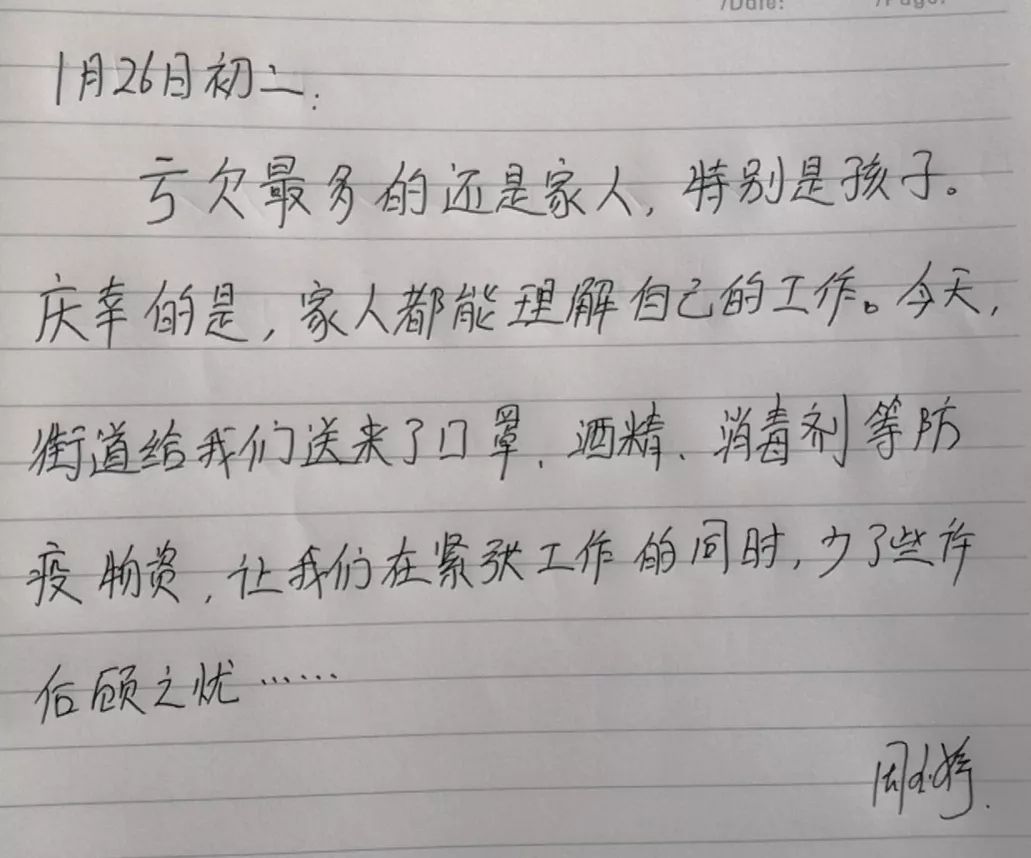 /Date: /Page:
1月26日初二:
亏欠最多的还是家人,特别是孩子。
庆幸的是,家人都能理解自己的工作。今天,
街道给我们送来了口罩、酒精、消毒剂等防
疫物资,让我们在紧张工作的同时,少了些许
后顾之忧……
周